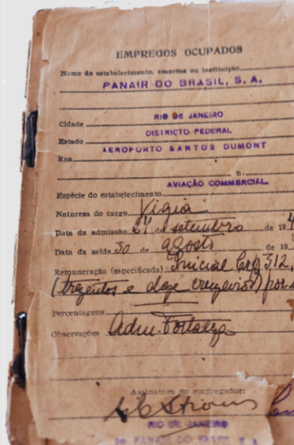 EMPREGOS OCUPADOS
Nome do estabelecimento, empresa ou instituição
PANAIR DO BRASIL, S. A.
Cidade RIO DE JANEIRO
Estado DISTRICTO FEDERAL
Rua AEROPORTO SANTOS DUMONT
n.
Espécie do estabelecimento AVIAÇÃO COMMERCIAL
Natureza do cargo Vigia
Data da admissão de setembro de 19
Data da saída 30 de agosto de 19
Remuneração (especificada) Inicial Cr$ 312,
(trezentos e doze cruzeiros) por
Percentagens
Observações Adm. Fortaleza
Assinatura do empregador:
RIO DE JANEIRO
PANAIR DO BRASIL S. A.